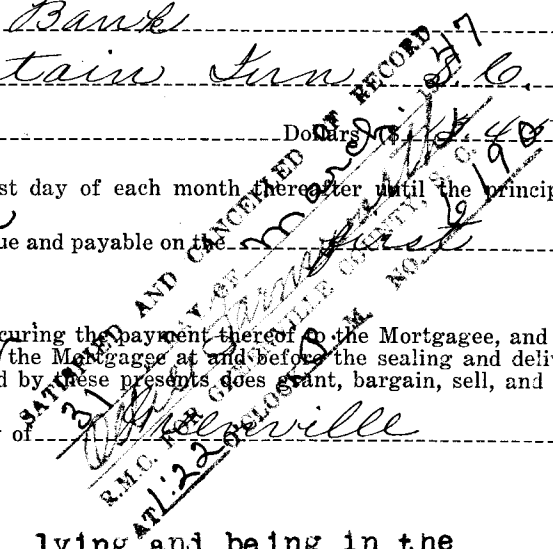 Bank
tain Inn S. C.
Dollars ($
st day of each month thereafter until the princip
ue and payable on the first
curing the payment thereof to the Mortgagee, and
the Mortgagee at and before the sealing and deli
d by these presents does grant, bargain, sell, and
of Greenville
lying and being in the
SATISFIED AND CANCELLED OF RECORD
31 DAY OF March 1947
R.M.C. FOR GREENVILLE COUNTY, S. C.
AT 1:22 O'CLOCK P M. NO. 6190